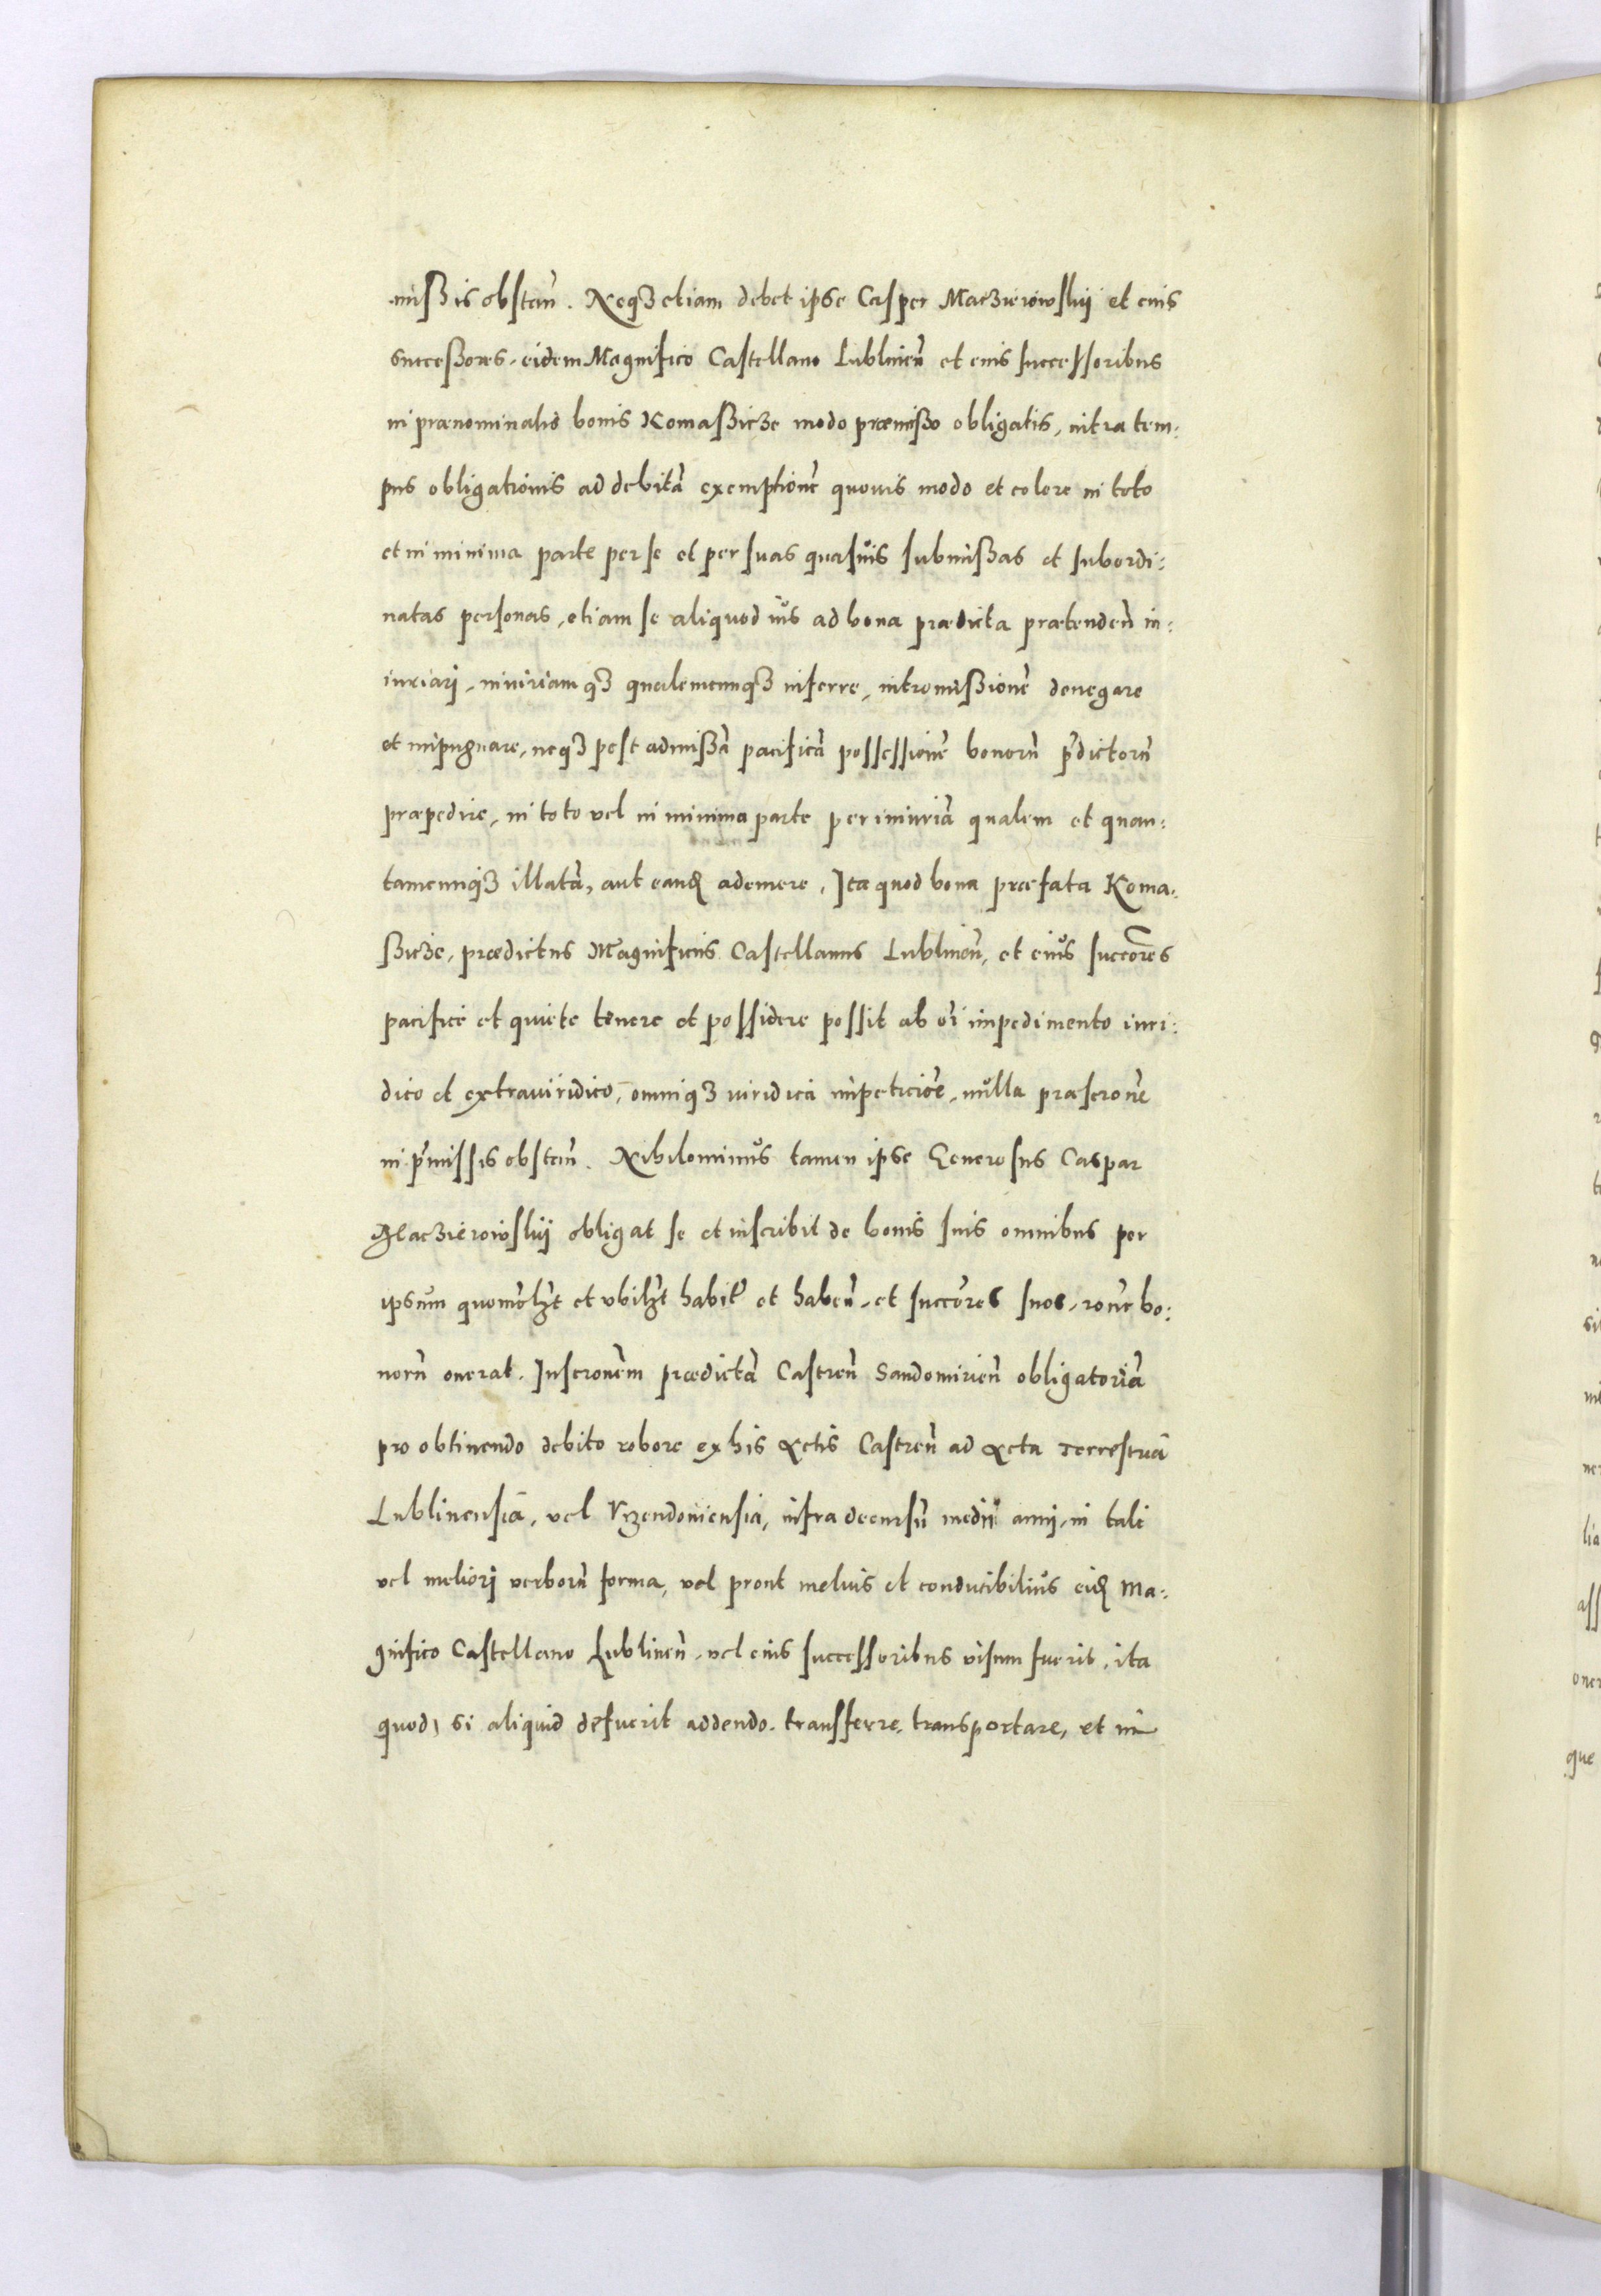 mißis obsteñ. Neqʒ etiam debet ipse Casper Maczierowskij et eius
succeßores, eidem Magnifico Castellano Lublineñ et eius successoribus
in prænominatis bonis Komaßicze modo præmißo obligatis, intra tem:
pus obligationis ad debitã exemptionẽ quouis modo et colore in toto
et in minima parte per se et per suas quasuis submißas et subordi:
natas personas, etiam se aliquod ius ad bona prædicta prætendeñ in:
iuriari, iniuriamqʒ qualemcunqʒ inferre, intromißionẽ denegare
et impugnare, neqʒ post admißã pacificã possessionẽ bonorũ p̃dictorũ
præpedire, in toto vel in minima parte per iniuriã qualem et quan:
tamcunqʒ illatã, aut eandẽ ademere, Ita quod bona præfata Koma:
ßicze, prædictus Magnificus Castellanus Lublineñ, et eius succõres
pacifice et quiete tenere et possidere possit ab oĩ impedimento iuri:
dico et extraiuridico, omniqʒ iuridica impeticiõe, nulla præscronẽ
in p̃missis obsteñ. Nihilominus tamen ipse Generosus Caspar
Maczierowskij obligat se et inscribit de bonis suis omnibus per
ipsum quomõlʒt et vbilʒt habit̃ et habeñ, et succõres suos, ronẽ bo:
norũ onerat. Inscronẽm prædictã Castreñ Sandomirieñ obligatoriã
pro obtinendo debito robore ex his Actis Castreñ ad Acta Terrestria
Lublinensia, vel Vrzendouiensia, infra decursũ medij anni, in tali
vel meliori verborũ forma, vel prout melius et conducibilius eidẽ Ma:
gnifico Castellano Lublineñ, vel eius successoribus visum fuerit, ita
quod, si aliquid defuerit addendo, transferre, transportare, et in